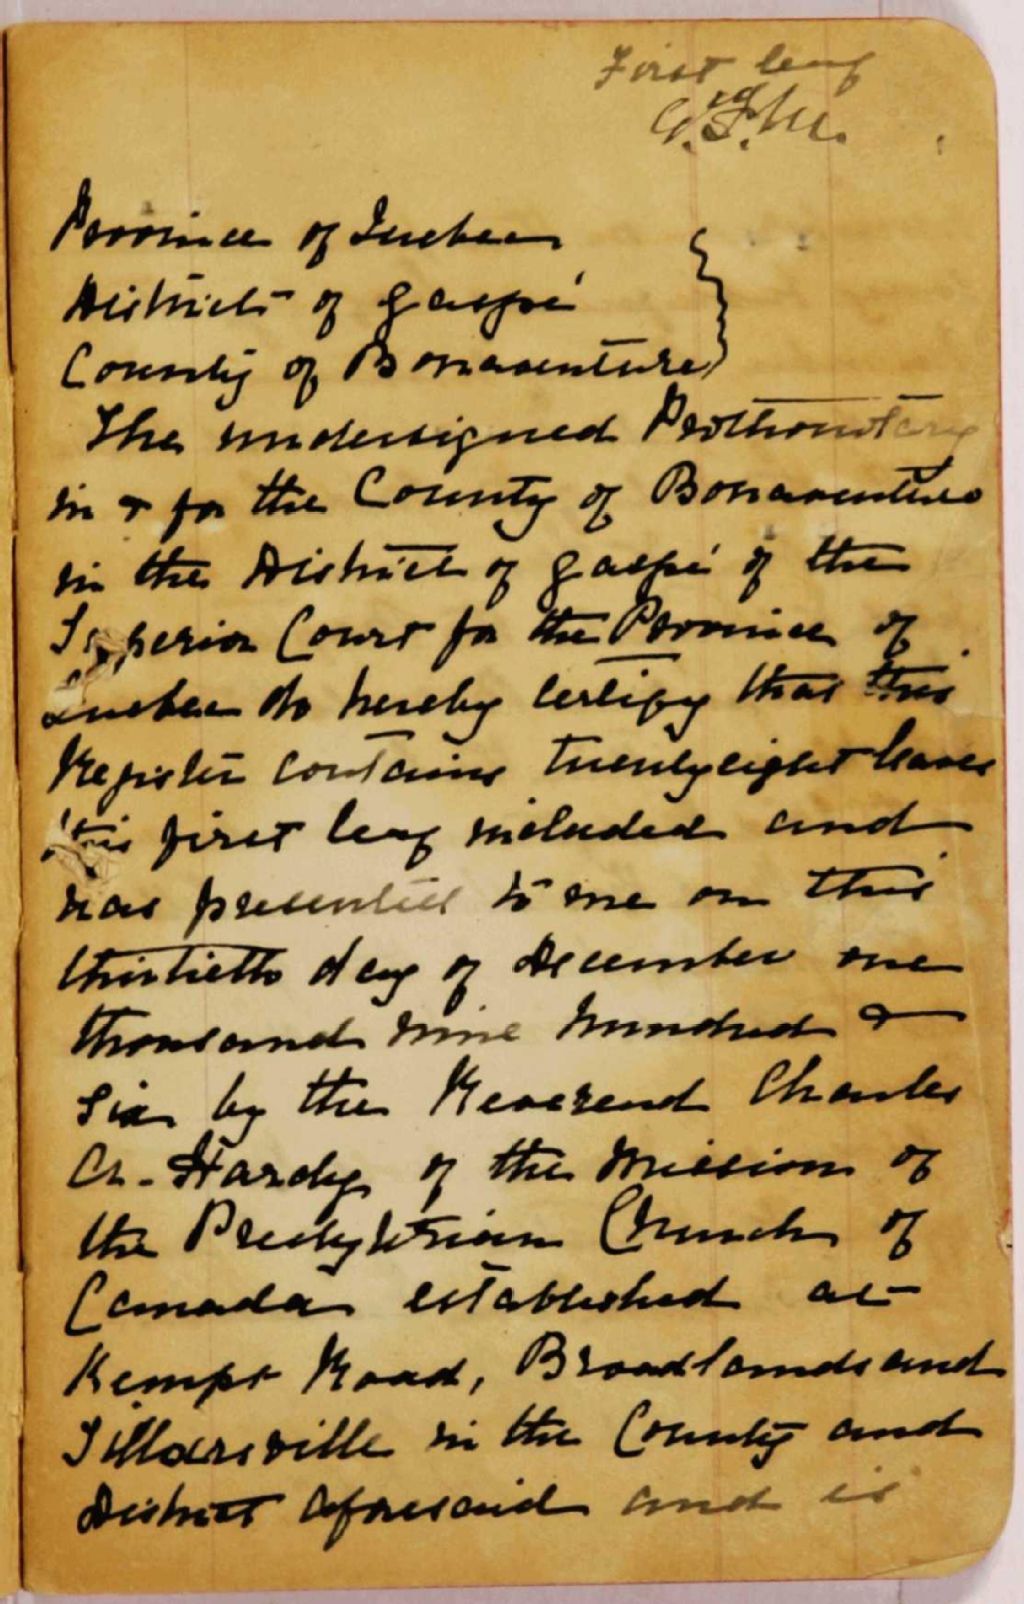 First leaf
Province of Quebec
District of Gaspé
County of Bonaventure
The undersigned Prothonotary
in & for the County of Bonaventure
in the District of Gaspé of the
Superior Court for the Province of
Quebec do hereby certify that this
Register contains twentyeight leaves
this first leaf included and
was presented to me on this
thirtieth day of December one
thousand nine hundred &
six by the Reverend Charles
A. Hardy of the Mission of
the Presbyterian Church of
Canada established at
Kempt Road, Broadlands and
in the County and
District aforesaid and is